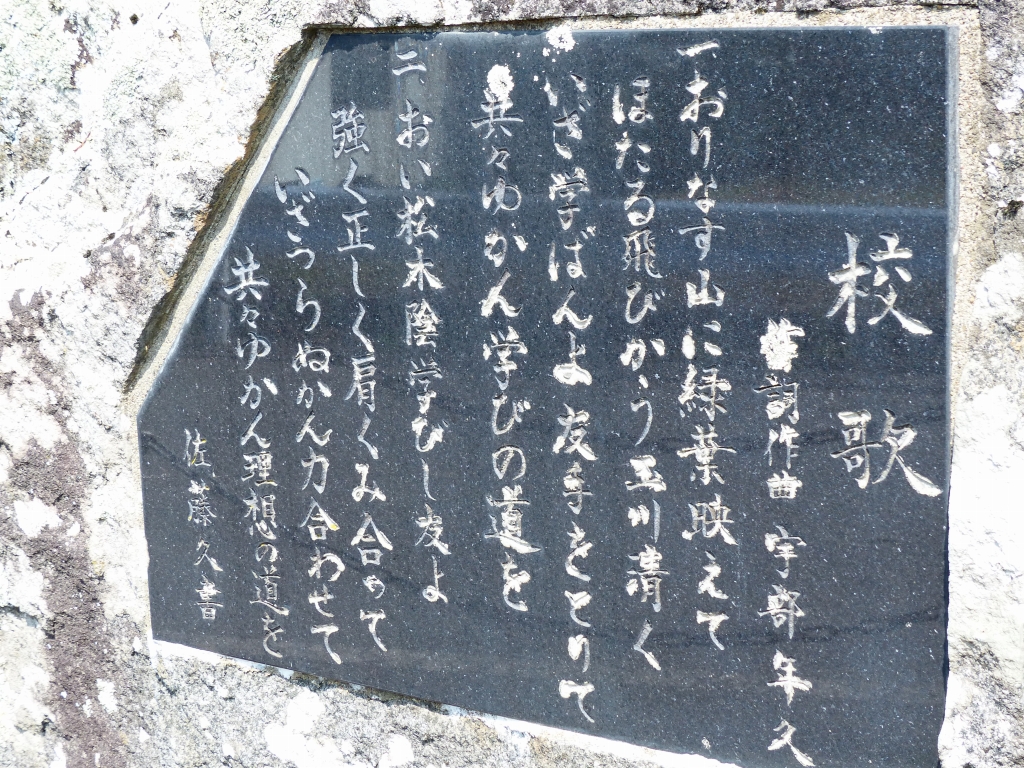 校歌
作詞作曲 宇部年久
一、おりなす山に緑葉映えて
ほたる飛びかう玉川清く
いざ学ばんよ友手をとりて
共々ゆかん学びの道を
二、おい松木陰学びし友よ
強く正しく肩くみ合って
いざうらぬかん力合わせて
共々ゆかん理想の道を
佐藤久書